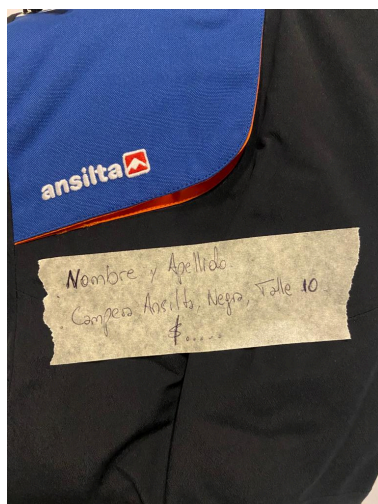 ansilta
Nombre y Apellido
Campera Ansilta, Negra, Talle 10
$.....